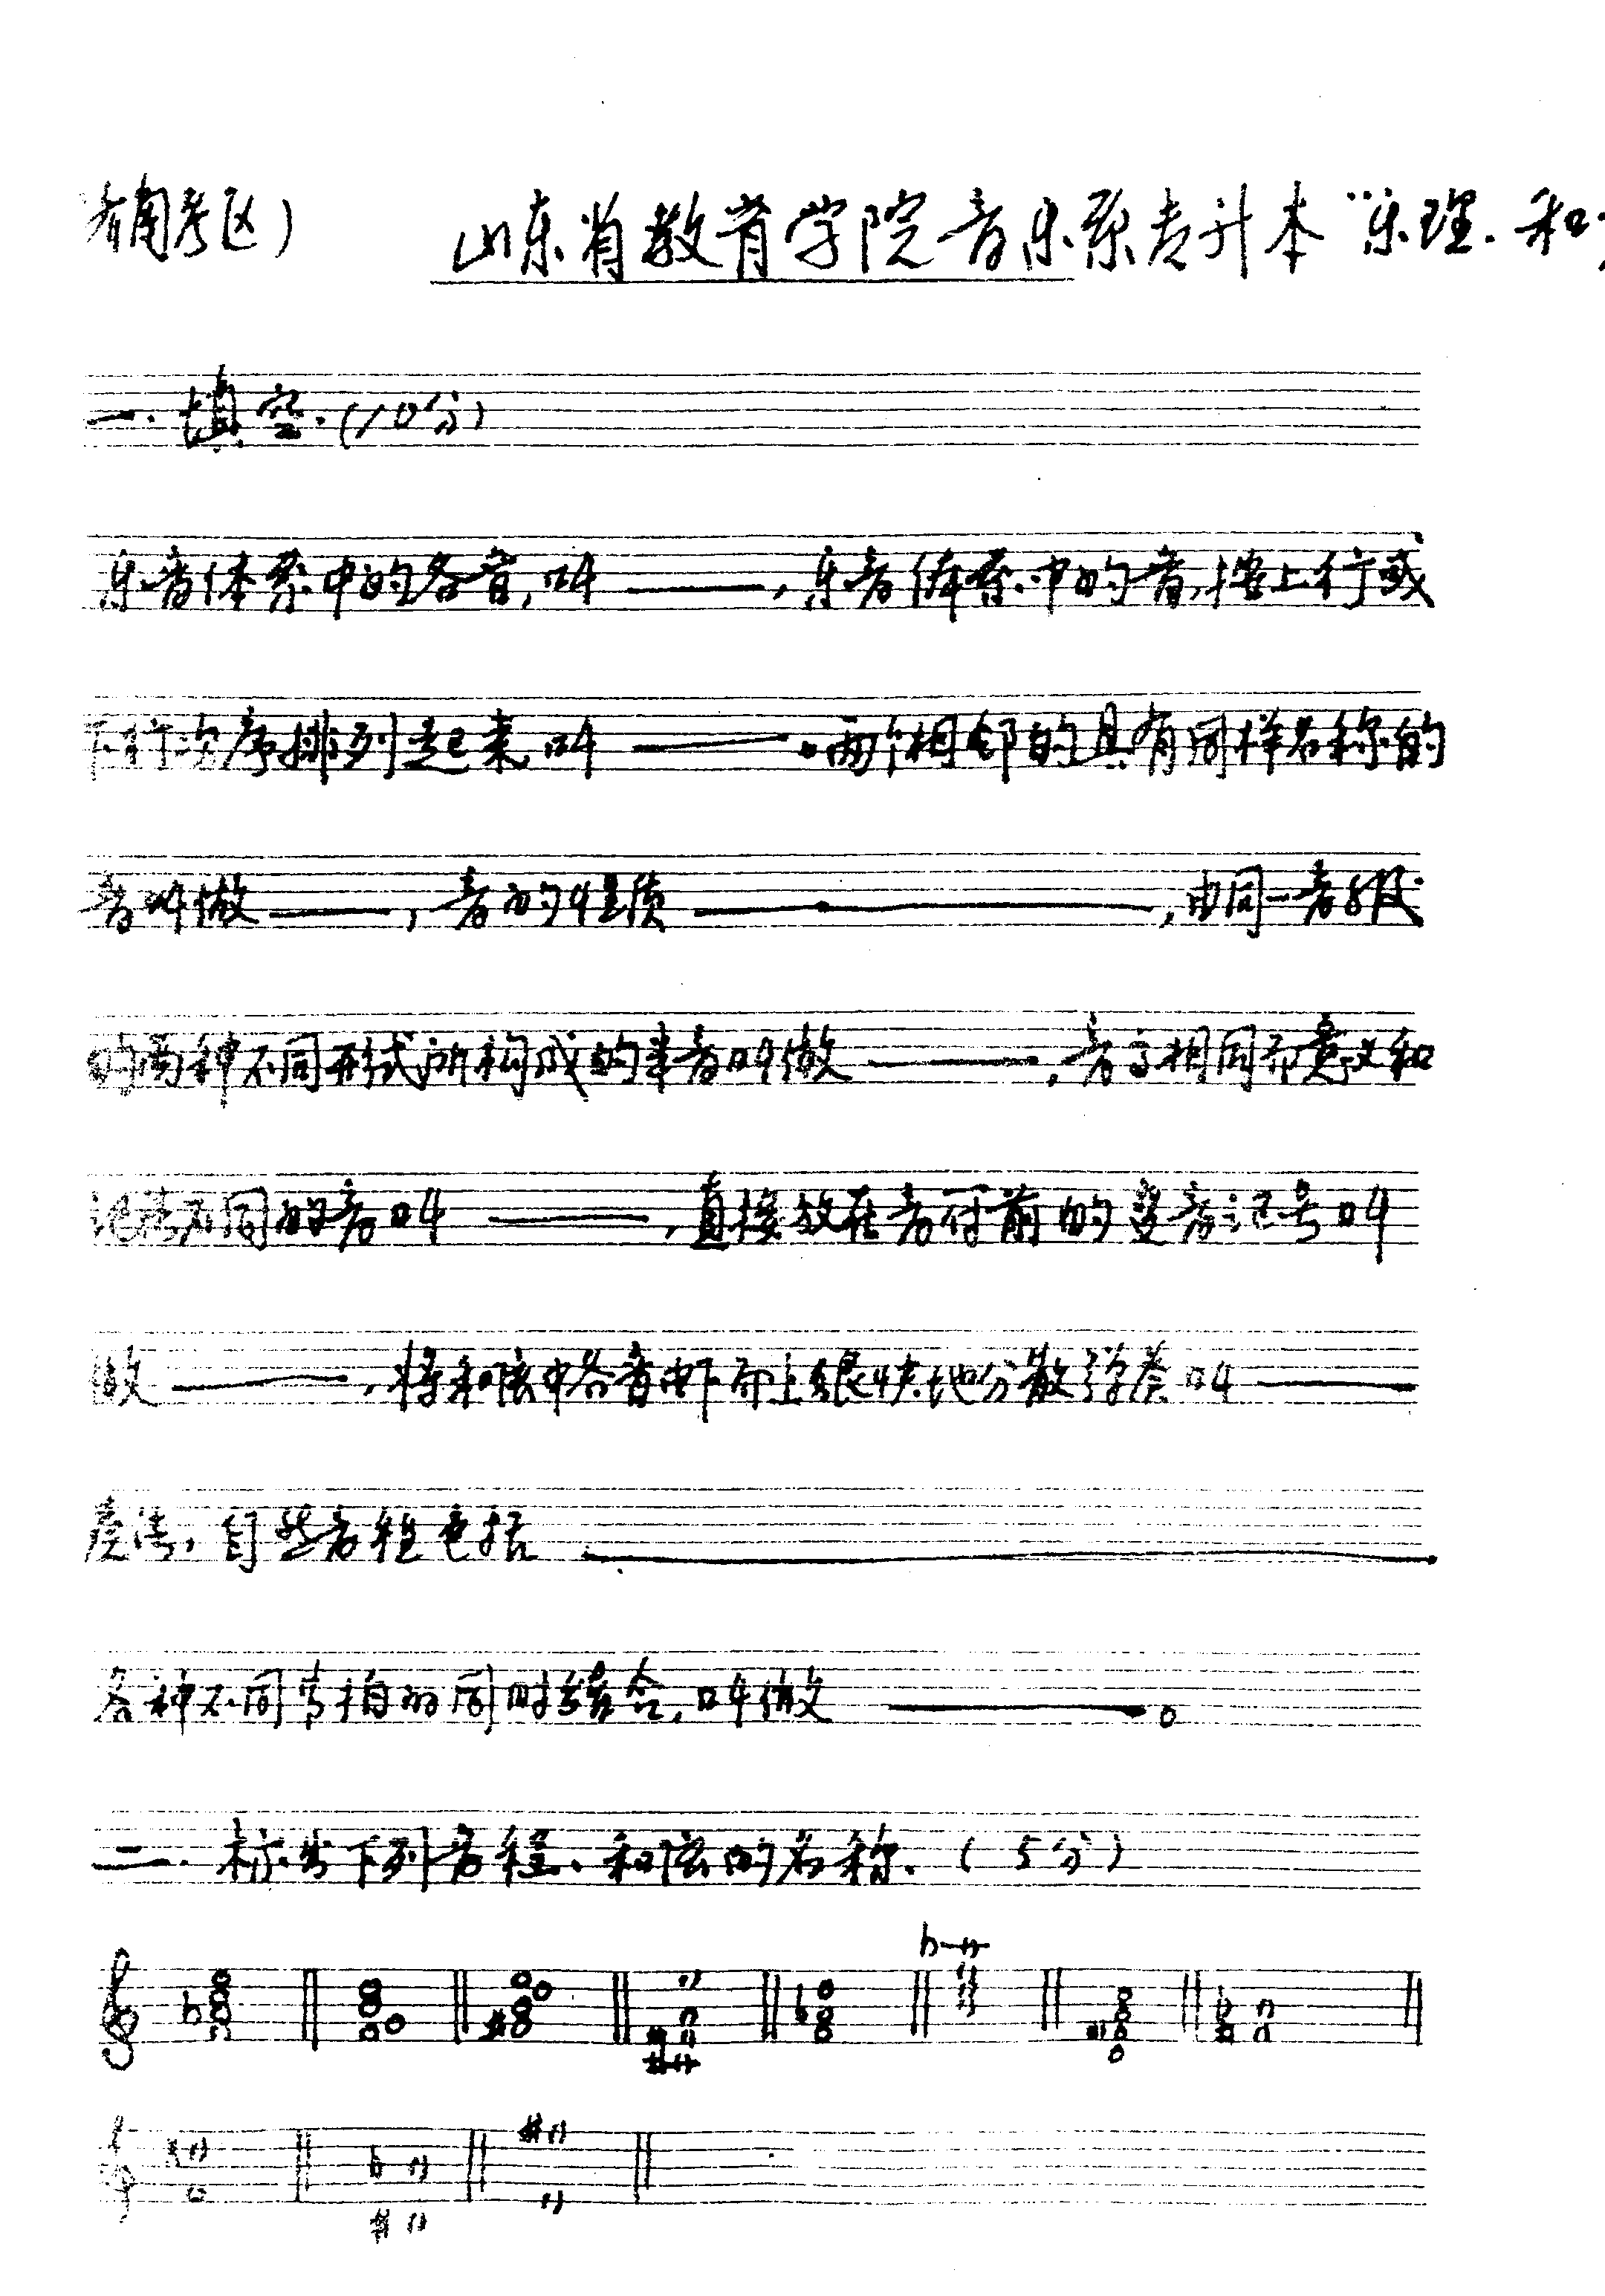 济南考区） 山东省教育学院音乐系专升本“乐理.和
一.填空.(10分)
乐音体系中的各音,叫 ———,乐音体系中的音,按上行或
下行次序排列起来叫 ———.两个相邻的具有同样名称的
音叫做———,音的性质 ———,由同一音级
的两种不同形式所构成的半音叫做 ———,音高相同而意义和
记法不同的音叫 ———,直接放在音符前的变音记号叫
做 ———,将和弦中各音由下而上很快地分散弹奏叫 ———
奏法,自然音程包括 ———
各种不同节拍的同时结合,叫做 ———。
二.标出下列音程、和弦的名称.(5分)